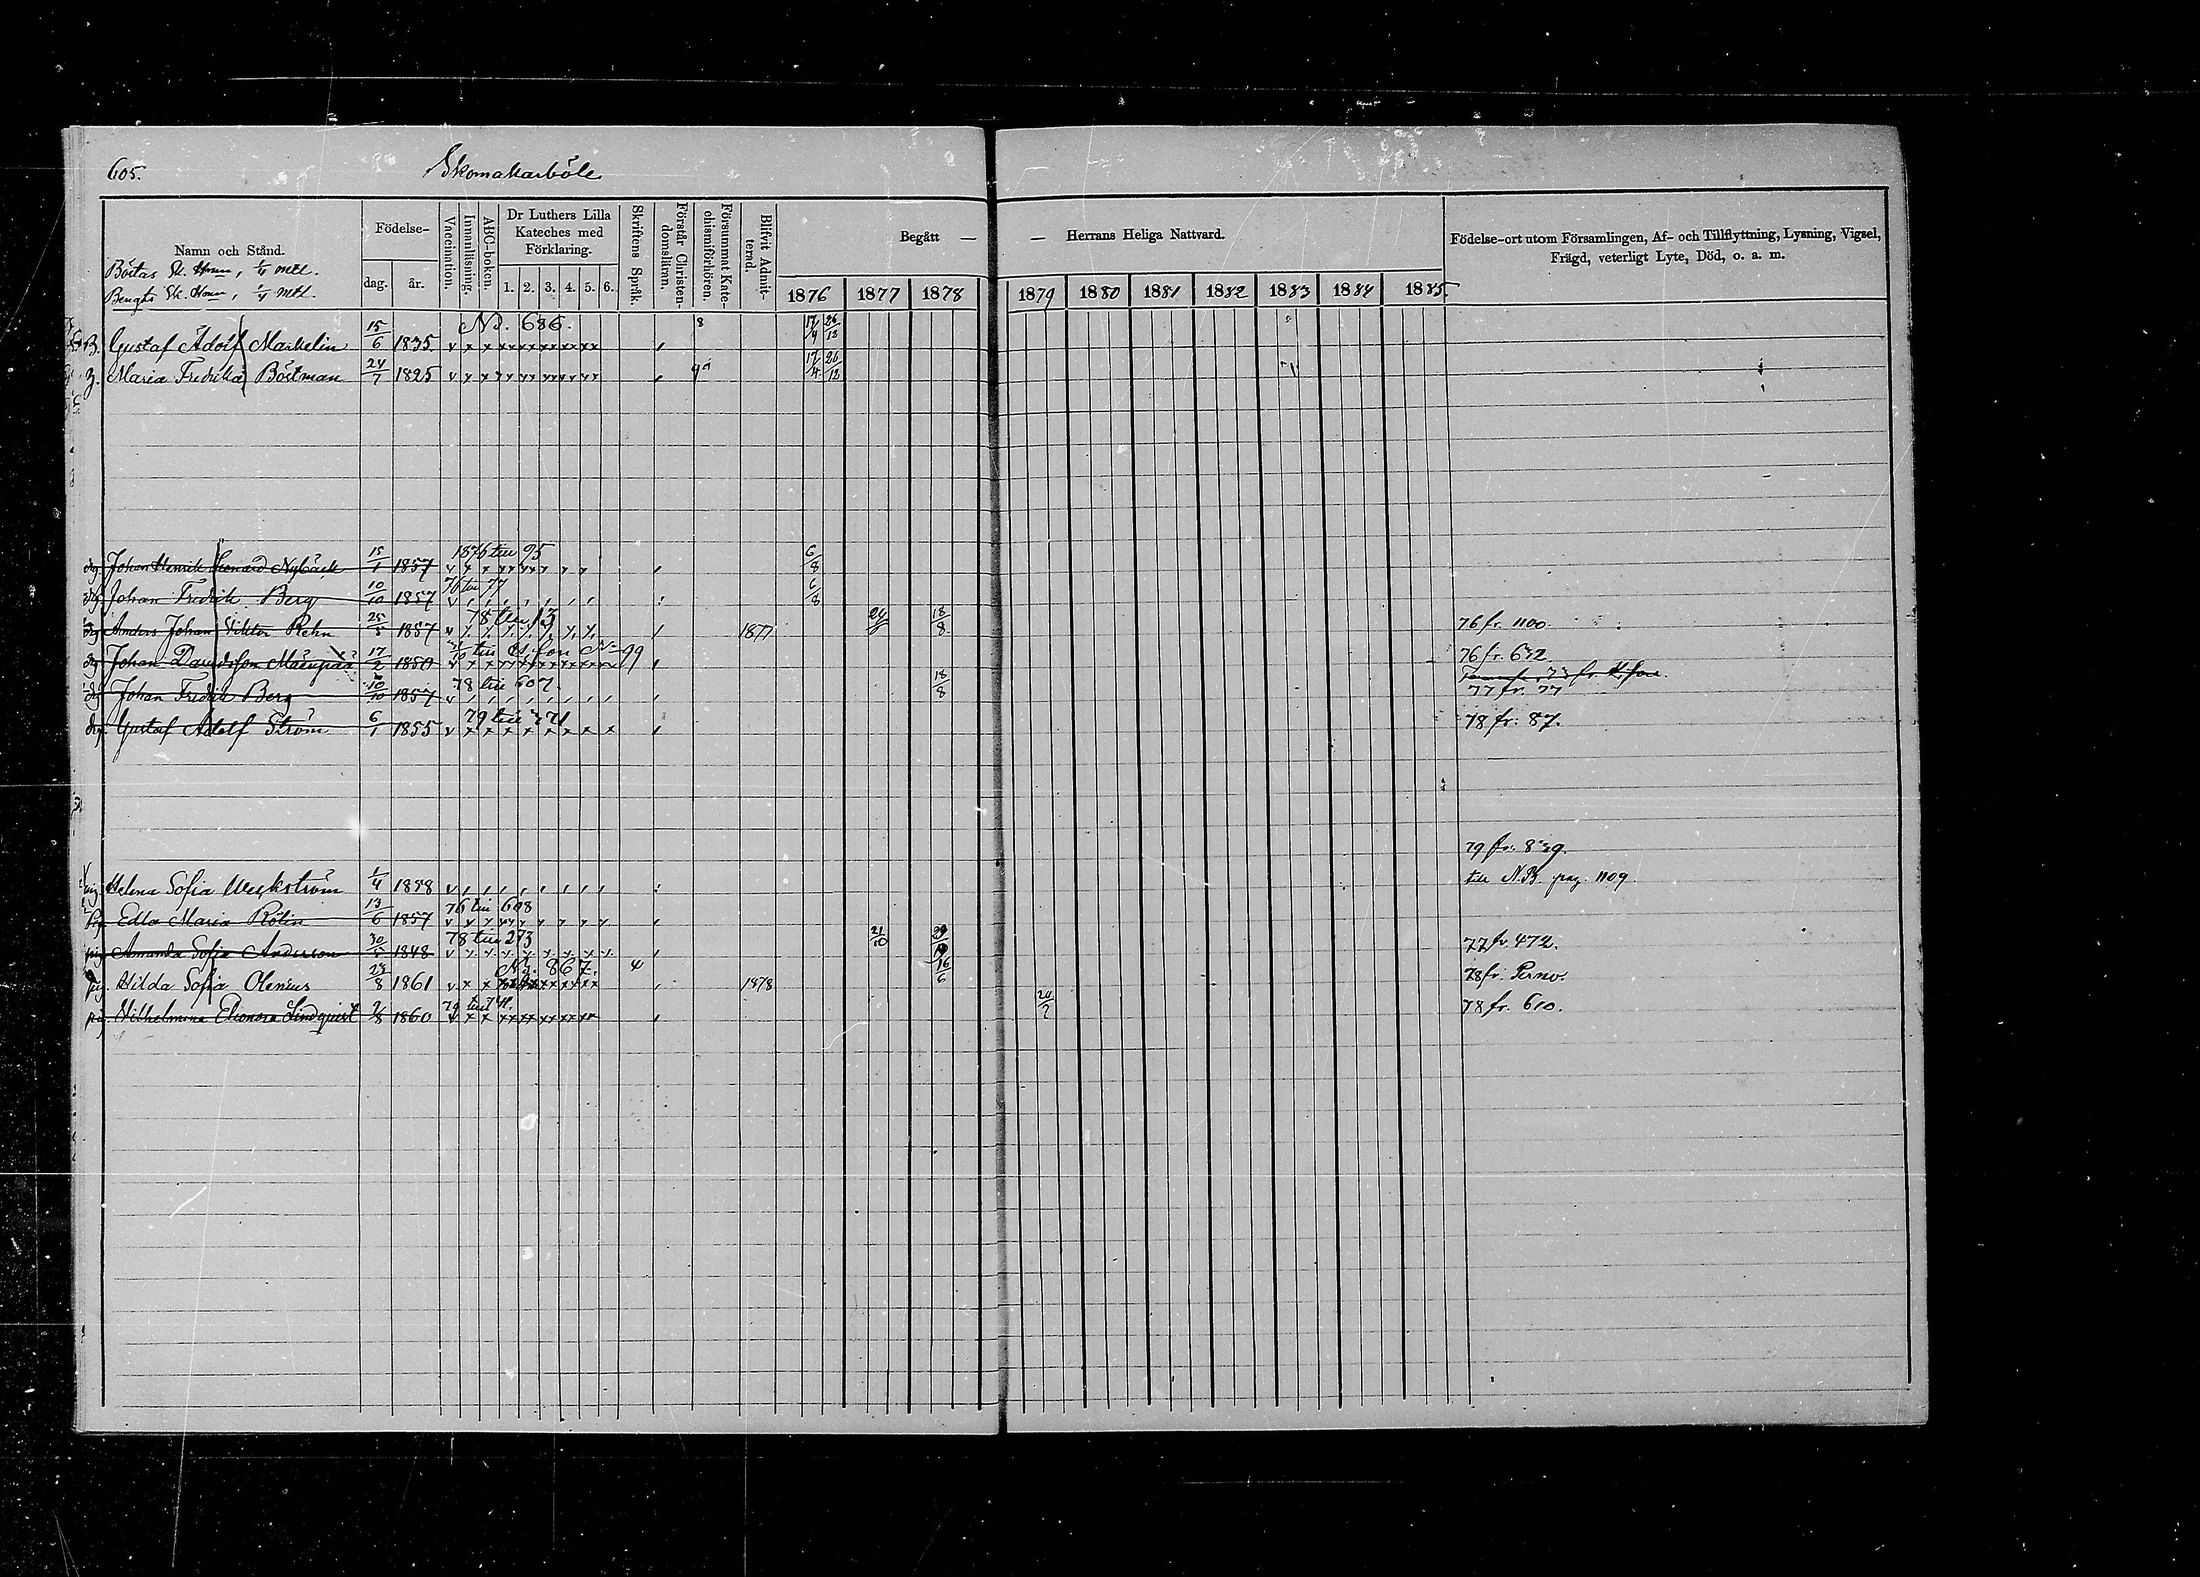 605.
Skomakarböle
Namn och Stånd.
Böstas Sk. Hmn, 1/4 mtl.
Bengts Sk. Hmn, 1/4 mtl.
Födelse-
dag.
år.
Vaccination.
Innanläsning.
ABC-boken.
Dr Luthers Lilla Kateches med Förklaring.
1. 2. 3. 4. 5. 6.
Skriftens Språk.
Förstår Christendomsläran.
Försummat Katechismiförhören.
Blifvit Admitterad.
Begått — — Herrans Heliga Nattvard.
1876 1877 1878 1879 1880 1881 1882 1883 1884 1885.
Födelse-ort utom Församlingen, Af- och Tillflyttning, Lysning, Vigsel, Frägd, veterligt Lyte, Död, o. a. m.
No. 686. 8
B. Gustaf Adolf Markelin 15/6 1835 17/4 26/12
Maria Fredrika Böstman 24/7 1825 17/4 26/12
1876 till 95
drg Johan Henrik Leonard Nybäck 15/1 1857 6/8
76 till 77
drg Johan Fredrik Berg 10/10 1857 6/8
78 till 13
drg Anders Johan Viktor Rehn 25/5 1857 1877 18/8 76 fr. 1100
drg Johan Davidsson 17/2 1850 76 fr. 672
78 till 607.
drg Johan Fredrik Berg 10/10 1857 18/8 77 fr. 77
79 till 771
drg. Gustaf Adolf Ström 6/1 1855 78 fr. 87.
79 fr. 829.
pig Helena Sofia Weckström 1/4 1858 till N.B. pag. 1109
76 till 608
Edla Maria Rölin 13/6 1857
78 till 273
pig Amanda Sofia Anderson 30/5 1848 21/10 77 fr. 472.
No. 867. 4
pig. Hilda Sofia Olenius 23/8 1861 1878 16/6 78 fr. Perno.
79 till 741.
pig Vilhelmina Eleonora Lindqvist 2/8 1860 78 fr. 610.